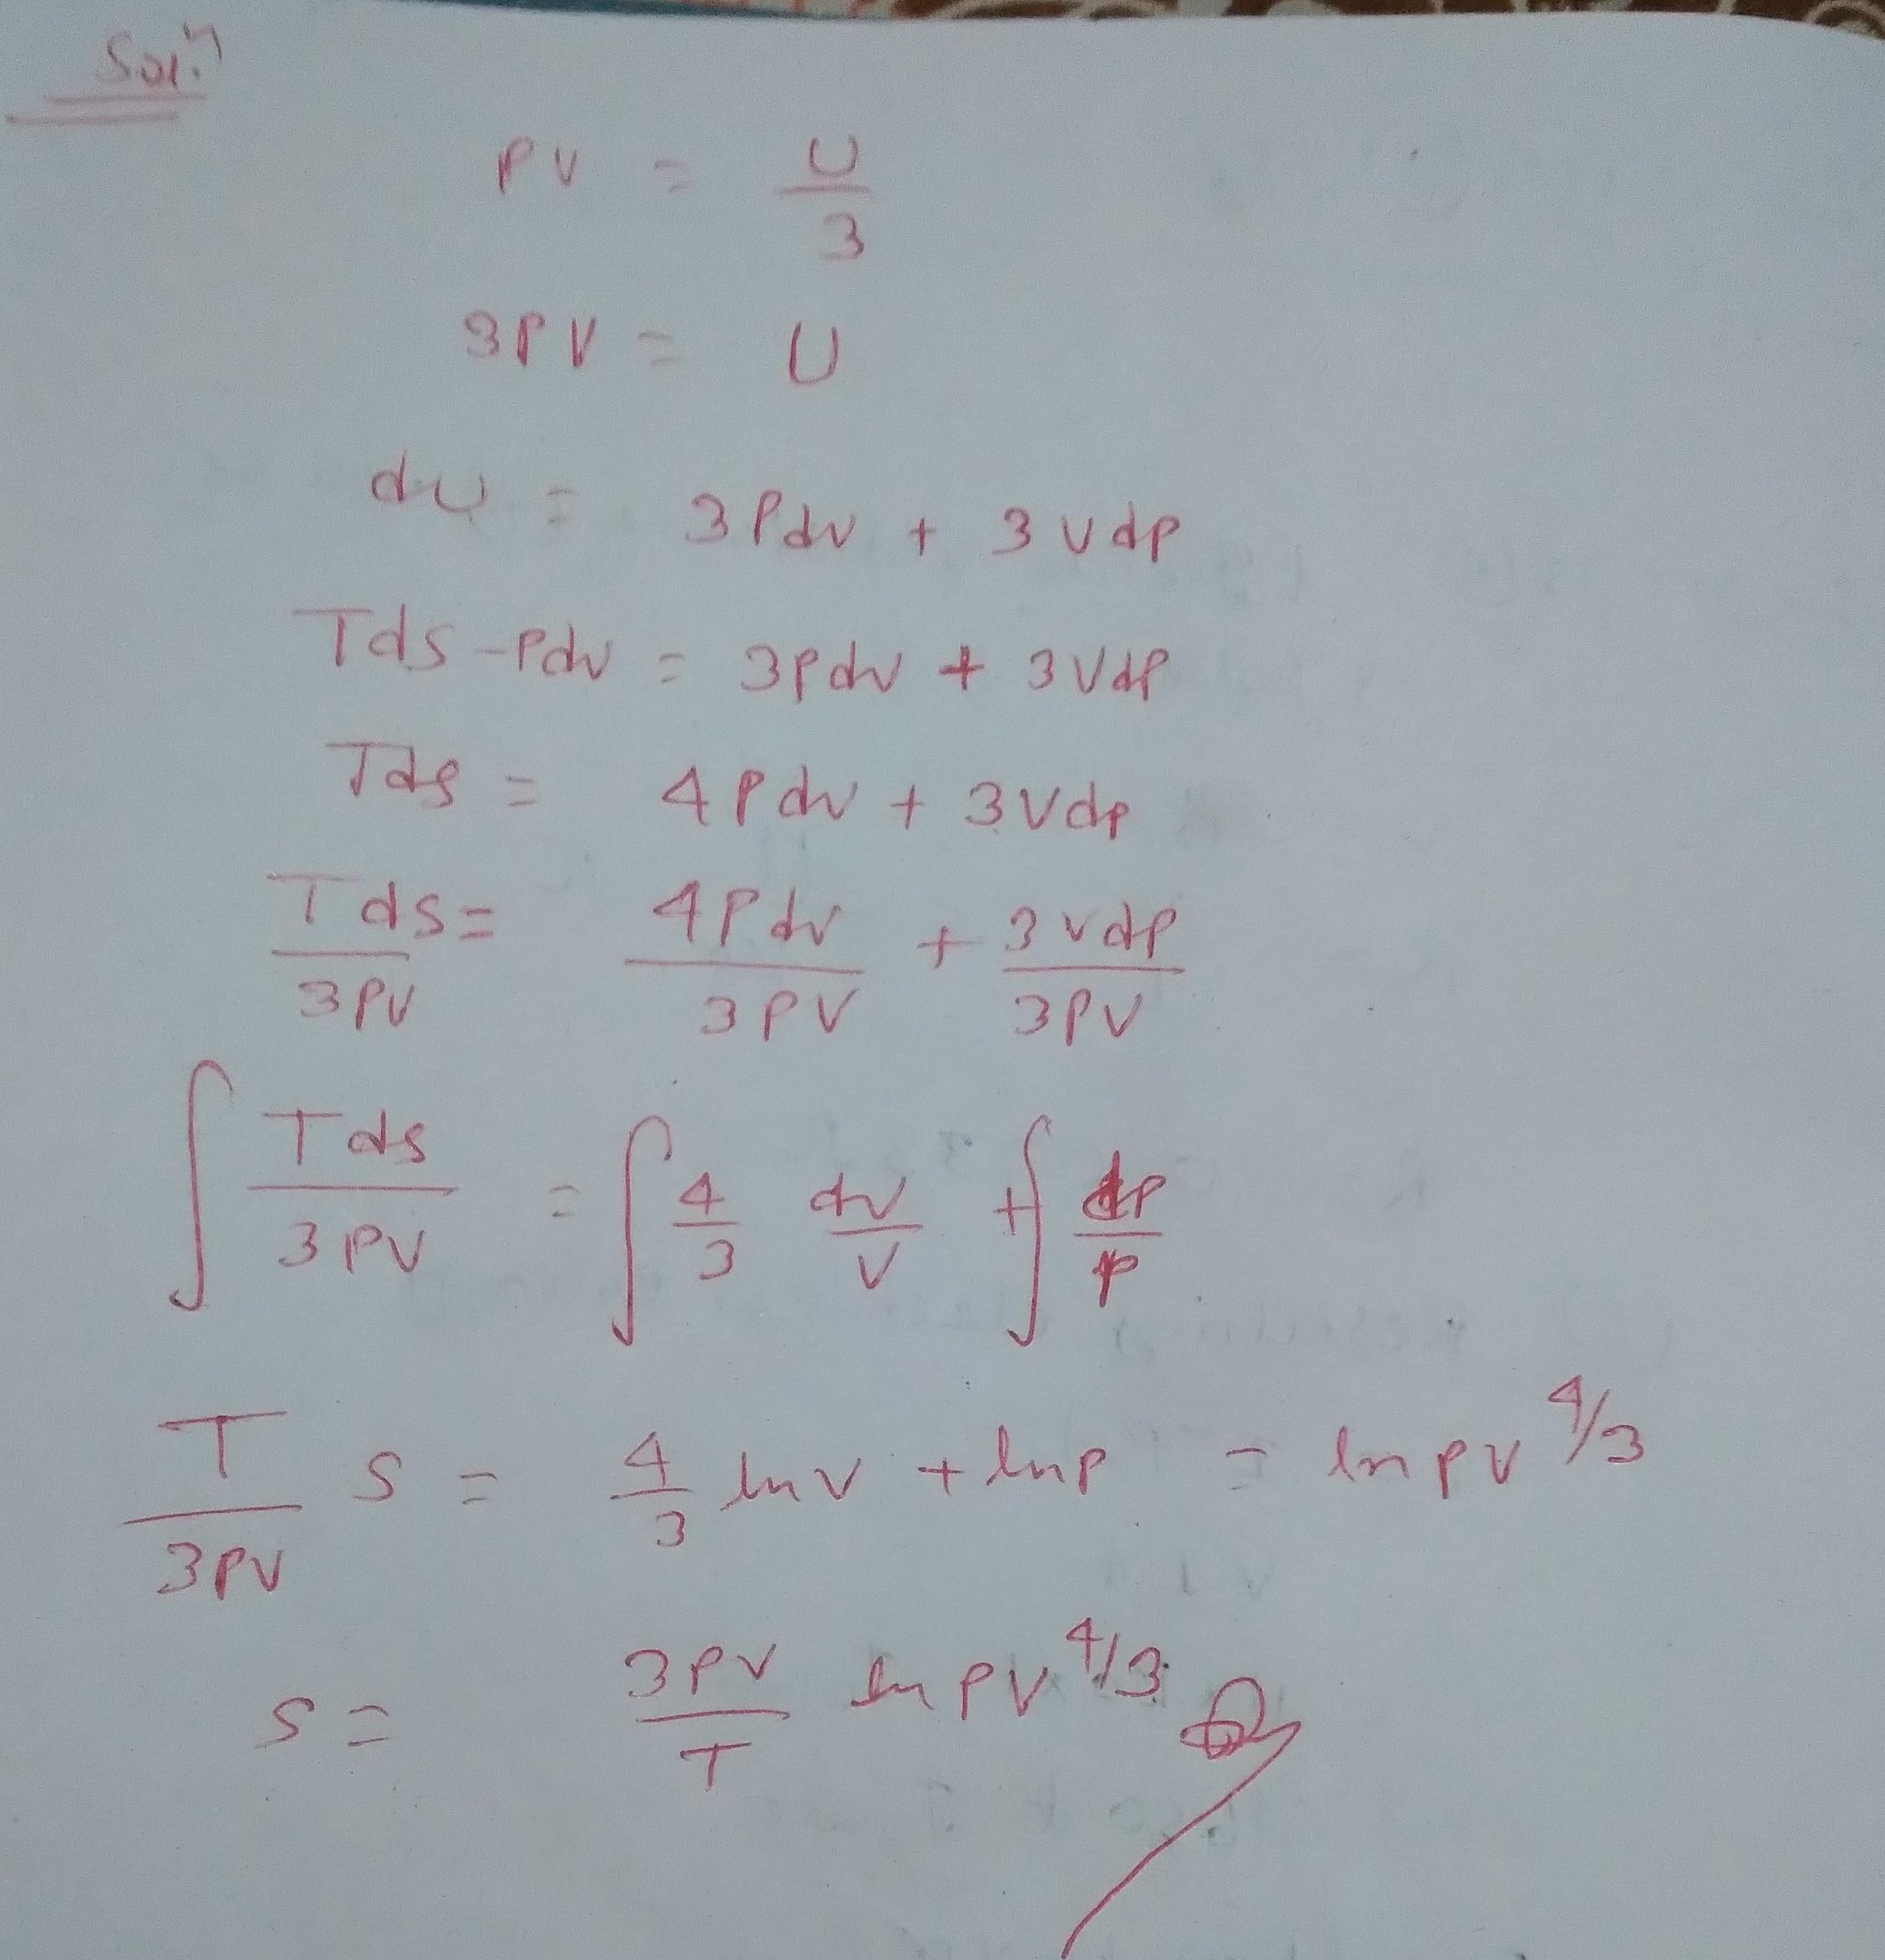 Solⁿ
PV = U/3
3PV = U
du = 3Pdv + 3vdp
Tds - Pdv = 3Pdv + 3Vdp
Tds = 4Pdv + 3Vdp
Tds/3PV = 4Pdv/3PV + 3vdp/3PV
∫ Tds/3PV = ∫ 4/3 dv/v + ∫ dp/p
T/3PV S = 4/3 lnv + lnp = ln pv^4/3
S = 3PV/T ln PV^4/3